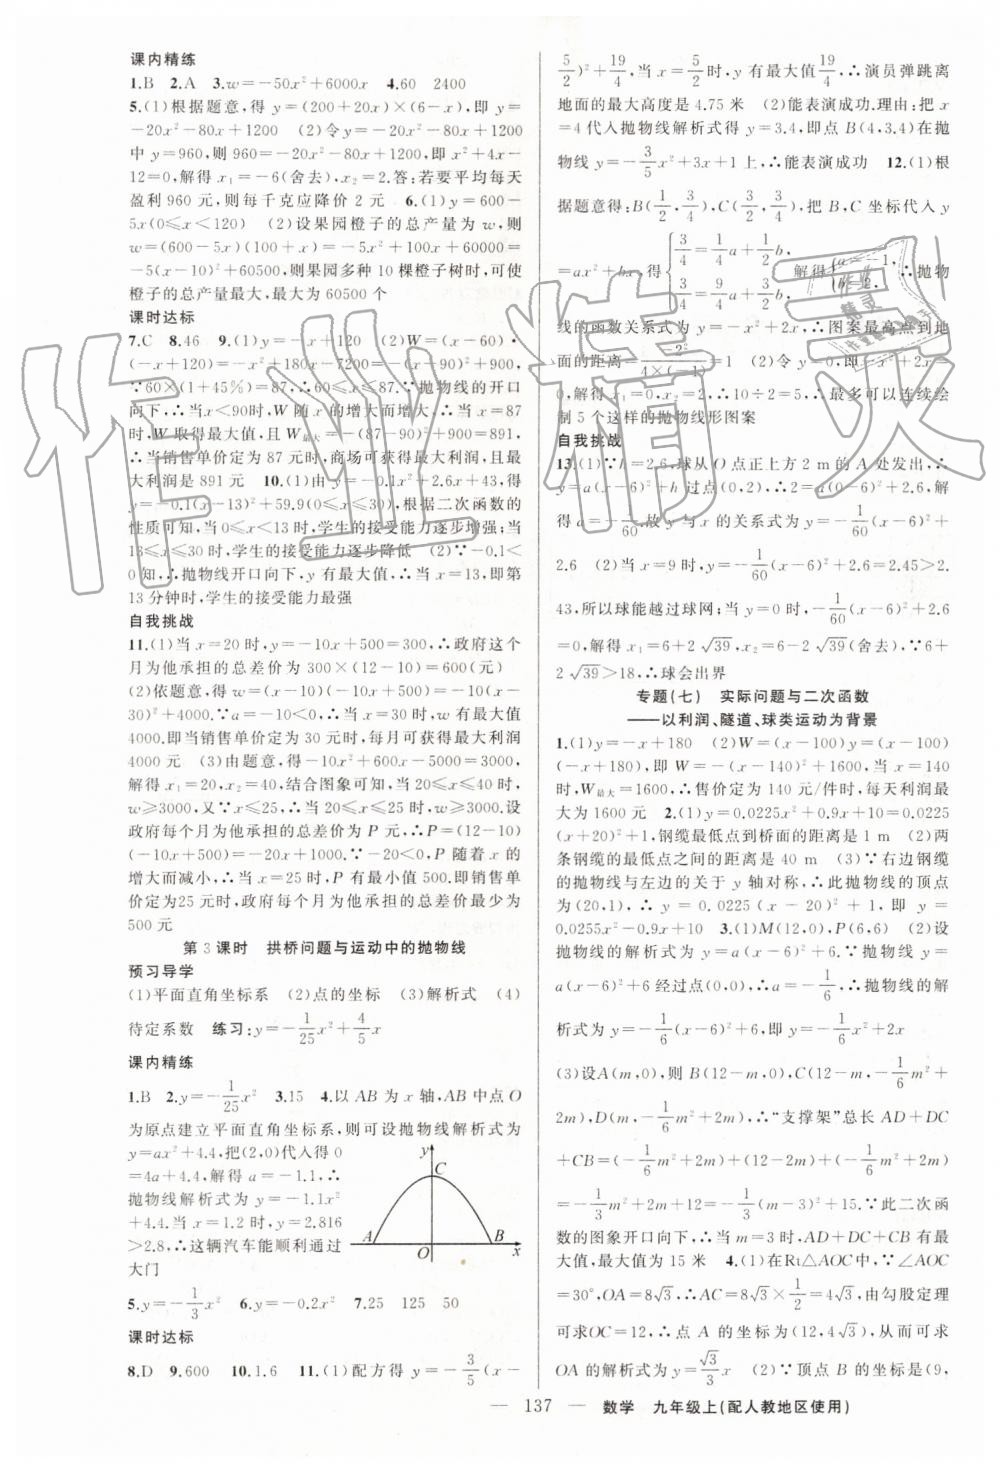 课内精练
1.B 2.A 3.w=-50x²+6000x 4.60 2400
5.(1)根据题意,得 y=(200+20x)×(6-x),即 y=
-20x²-80x+1200 (2)令 y=-20x²-80x+1200
中 y=960,则有 960=-20x²-80x+1200,即 x²+4x-
12=0,解得 x₁=-6(舍去),x₂=2.答:若要平均每天
盈利 960 元,则每千克应降价 2 元 6.(1)y=600-
5x(0≤x<120) (2)设果园橙子的总产量为 w,则
w=(600-5x)(100+x)=-5x²+100x+60000=
-5(x-10)²+60500,则果园多种 10 棵橙子树时,可使
橙子的总产量最大,最大为 60500 个
课时达标
7.C 8.46 9.(1)y=-x+120 (2)W=(x-60)·
(-x+120)=-x²+180x-7200=-(x-90)²+900,
∵60×(1+45%)=87,∴60≤x≤87.∵抛物线的开口
向下,∴当 x<90时,W 随 x 的增大而增大,∴当 x=87
时,W 取得最大值,且 W最大=-(87-90)²+900=891,
∴当销售单价定为 87 元时,商场可获得最大利润,且最
大利润是 891 元 10.(1)由y=-0.1x²+2.6x+43,得
y=-0.1(x-13)²+59.9(0≤x≤30),根据二次函数的
性质可知,当 0≤x<13 时,学生的接受能力逐步增强;当
13≤x≤30 时,学生的接受能力逐步降低 (2)∵-0.1<
0 知,∴抛物线开口向下,y 有最大值,∴当 x=13,即第
13 分钟时,学生的接受能力最强
自我挑战
11.(1)当 x=20 时,y=-10x+500=300,∴政府这个
月为他承担的总差价为 300×(12-10)=600(元)
(2)依题意,得 w=(x-10)(-10x+500)=-10(x-
30)²+4000.∵a=-10<0,∴当 x=30 时,w 有最大值
4000.即当销售单价定为 30 元时,每月可获得最大利润
4000 元 (3)由题意,得-10x²+600x-5000=3000,
解得 x₁=20,x₂=40,结合图象可知,当 20≤x≤40 时,
w≥3000,又∵x≤25,∴当 20≤x≤25 时,w≥3000.设
政府每个月为他承担的总差价为 P 元,∴P=(12-10)
(-10x+500)=-20x+1000.∵-20<0,P 随着 x 的
增大而减小,∴当 x=25 时,P 有最小值 500.即销售单
价定为25元时,政府每个月为他承担的总差价最少为
500 元
第 3 课时 拱桥问题与运动中的抛物线
预习导学
(1)平面直角坐标系 (2)点的坐标 (3)解析式 (4)
待定系数 练习:y=-1/25x²+4/5x
课内精练
1.B 2.y=-1/25x² 3.15 4.以 AB 为 x 轴,AB 中点 O
为原点建立平面直角坐标系,则可设抛物线解析式为
y=ax²+4.4,把(2,0)代入得 0
=4a+4.4,解得 a=-1.1,∴
抛物线解析式为 y=-1.1x²
+4.4.当 x=1.2 时,y=2.816
>2.8,∴这辆汽车能顺利通过
大门
y
C
A
B
O
x
5.y=-1/3x² 6.y=-0.2x² 7.25 125 50
课时达标
8.D 9.600 10.1.6 11.(1)配方得 y=-3/5(x-
5/2)²+19/4,当 x=5/2时,y 有最大值19/4,∴演员弹跳离
地面的最大高度是 4.75 米 (2)能表演成功.理由:把 x
=4 代入抛物线解析式得 y=3.4,即点 B(4,3.4)在抛
物线 y=-3/5x²+3x+1 上,∴能表演成功 12.(1)根
据题意得:B(1/2,3/4),C(3/2,3/4),把 B,C 坐标代入 y
=ax²+bx,得{3/4=1/4a+1/2b, 3/4=9/4a+3/2b, 解得{a=-1, b=2, ∴抛物
线的函数关系式为 y=-x²+2x,∴图案最高点到地
面的距离=-2²/4×(-1)=1 (2)令 y=0,即-x²+2x=
0,解得 x₁=0,x₂=2,∴10÷2=5,∴可以连续绘
制 5 个这样的抛物线形图案
自我挑战
13.(1)∵h=2.6,球从 O 点正上方 2 m 的 A 处发出,∴
y=a(x-6)²+h 过点(0,2),∴2=a(0-6)²+2.6,解
得 a=-1/60,故 y 与 x 的关系式为 y=-1/60(x-6)²+
2.6 (2)当 x=9 时,y=-1/60(x-6)²+2.6=2.45>2.
43,所以球能越过球网;当 y=0 时,-1/60(x-6)²+2.6
=0,解得 x₁=6+2√39,x₂=6-2√39(舍去),∵6+
2√39>18,∴球会出界
专题(七) 实际问题与二次函数
——以利润、隧道、球类运动为背景
1.(1)y=-x+180 (2)W=(x-100)y=(x-100)
(-x+180),即 W=-(x-140)²+1600,当 x=140
时,W最大=1600,∴售价定为 140 元/件时,每天利润最
大为 1600 元 2.(1)y=0.0225x²+0.9x+10=0.0225
(x+20)²+1,钢缆最低点到桥面的距离是 1 m (2)两
条钢缆的最低点之间的距离是 40 m (3)∵右边钢缆
的抛物线与左边的关于 y 轴对称,∴此抛物线的顶点
为(20,1),∴y=0.0225(x-20)²+1,即 y=
0.0255x²-0.9x+10 3.(1)M(12,0),P(6,6) (2)设
抛物线的解析式为 y=a(x-6)²+6.∵抛物线 y=
a(x-6)²+6 经过点(0,0),∴a=-1/6,∴抛物线的解
析式为 y=-1/6(x-6)²+6,即 y=-1/6x²+2x
(3)设A(m,0),则 B(12-m,0),C(12-m,-1/6m²+
2m),D(m,-1/6m²+2m),∴“支撑架”总长 AD+DC
+CB=(-1/6m²+2m)+(12-2m)+(-1/6m²+2m)
=-1/3m²+2m+12=-1/3(m-3)²+15.∵此二次函
数的图象开口向下,∴当 m=3 时,AD+DC+CB 有
最大值,最大值为 15 米 4.(1)在Rt△AOC中,∵∠AOC
=30°,OA=8√3,∴AC=8√3×1/2=4√3,由勾股定理
可求OC=12,∴点 A 的坐标为(12,4√3),从而可求
OA 的解析式为 y=√3/3x (2)∵顶点 B 的坐标是(9,
— 137 — 数学 九年级上(配人教地区使用)
作业精灵